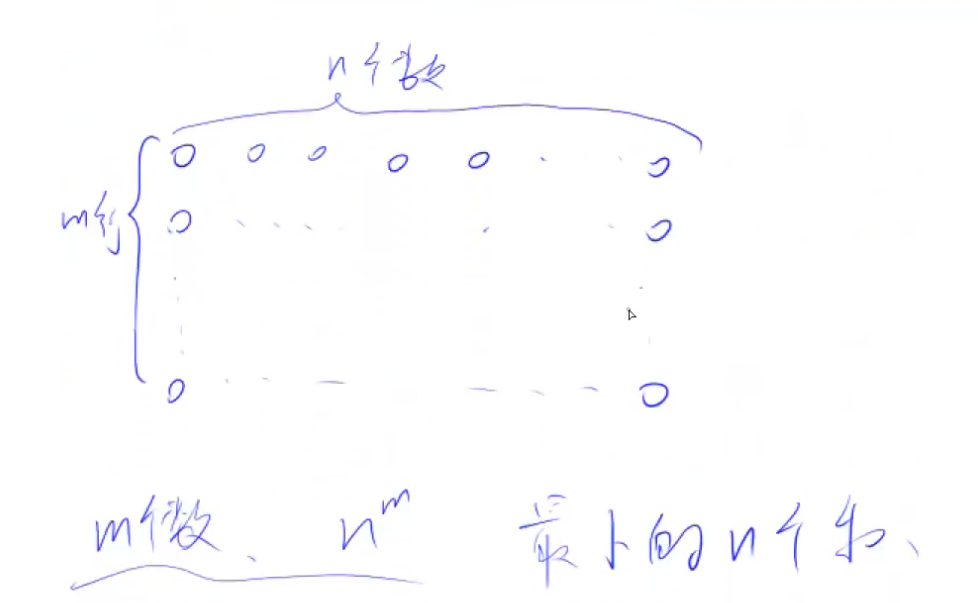 n个数
m行
m个数、 n^m 最小的n个和、